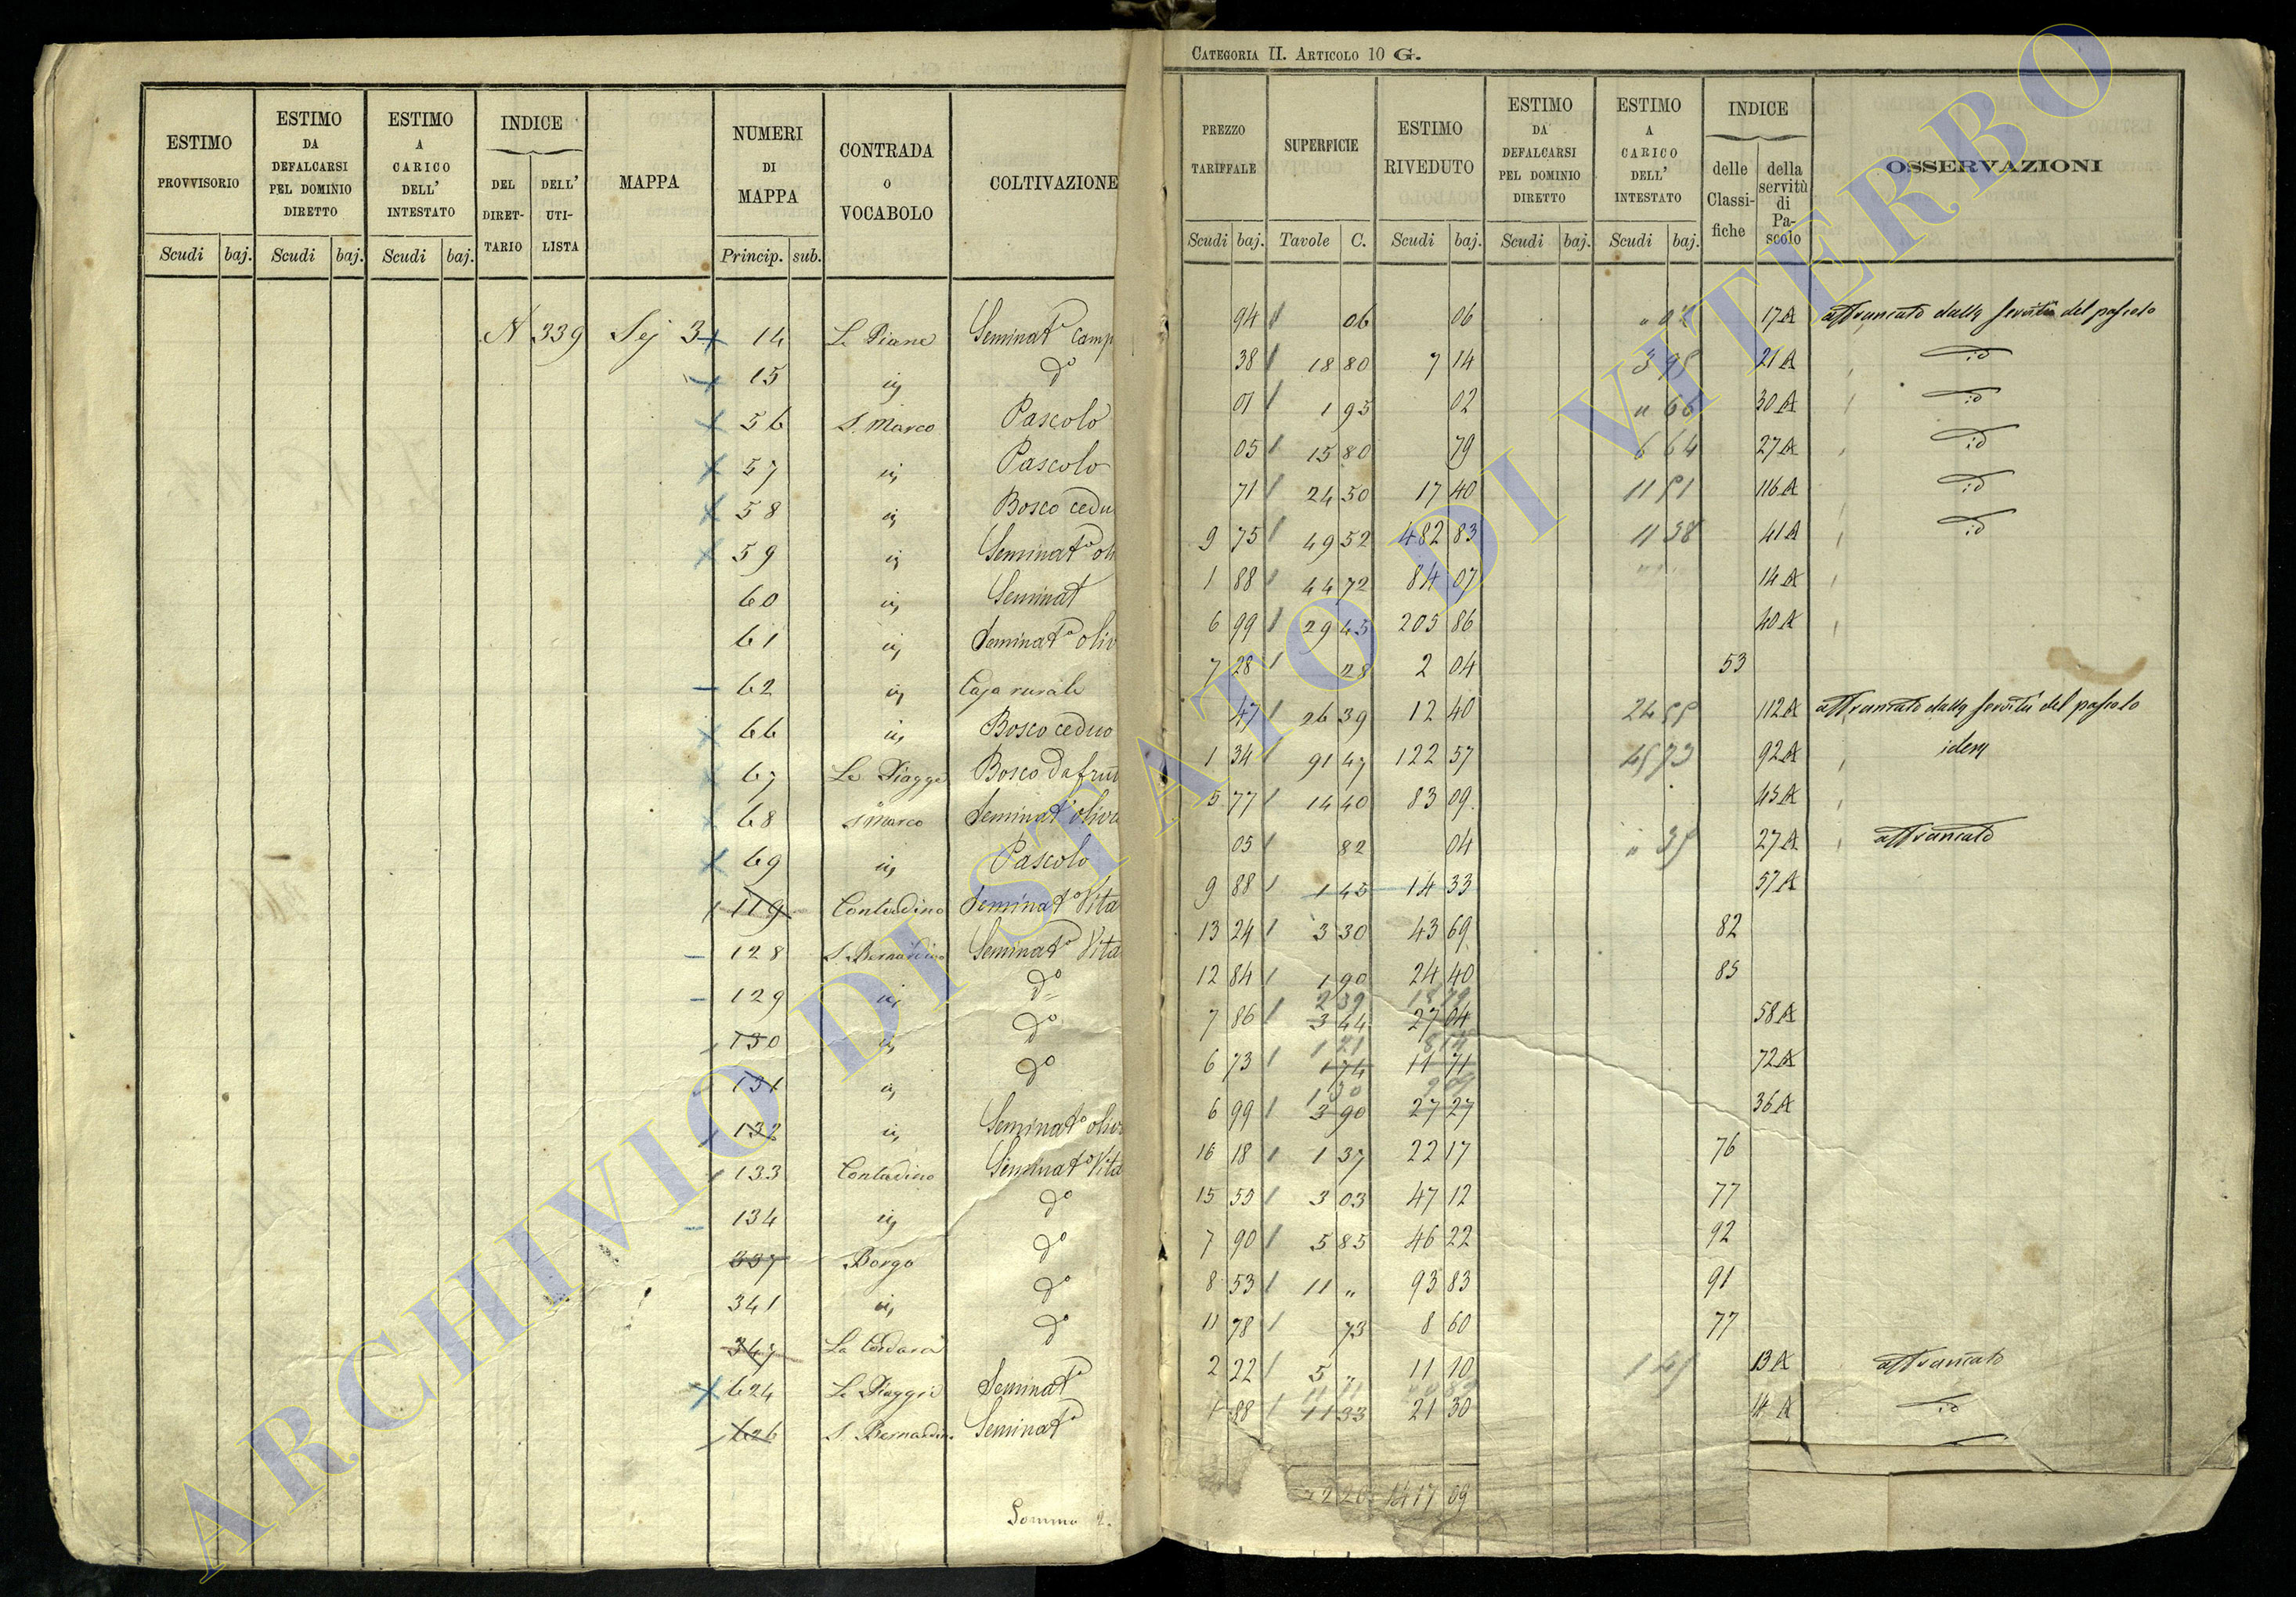 CATEGORIA II. ARTICOLO 10 G.
ESTIMO PROVVISORIO Scudi baj.
ESTIMO DA DEFALCARSI PEL DOMINIO DIRETTO Scudi baj.
ESTIMO A CARICO DELL' INTESTATO Scudi baj.
INDICE DEL DIRET-TARIO DELL' UTI-LISTA
MAPPA
NUMERI DI MAPPA Princip. sub.
CONTRADA O VOCABOLO
COLTIVAZIONE
PREZZO TARIFFALE Scudi baj.
SUPERFICIE Tavole C.
ESTIMO RIVEDUTO Scudi baj.
ESTIMO DA DEFALCARSI PEL DOMINIO DIRETTO Scudi baj.
ESTIMO A CARICO DELL' INTESTATO Scudi baj.
INDICE delle Classi-fiche della servitù di Pa-scolo
OSSERVAZIONI
339 Sej 3 14 Le Piane Seminat° Camp 94 06 06 17A affrancato dalla servitù del pascolo
15 d° 38 18 80 7 14 3 98 21A id
56 S. Marco Pascolo 01 1 95 02 " 66 30A id
57 Pascolo 05 15 80 79 6 64 27A id
58 Bosco cedu 71 24 50 17 40 116A id
59 Seminat° oli 9 75 49 52 482 83 11 38 41A id
60 Seminat 1 88 44 72 84 07 14A
61 Seminat° oliv 6 99 29 45 205 86 40A
62 Casa rurale 7 28 28 2 04 53
66 Bosco ceduo 47 26 39 12 40 112A affrancato dalla servitù del pascolo
67 Le Piagge Bosco da frut 1 34 91 47 122 57 92A idem
68 S. Marco Seminat° oliva 5 77 14 40 83 09 45A
69 Pascolo 05 82 04 27A affrancato
119 Contadino Seminat° Vita 9 88 1 45 14 33 57A
128 S. Bernardino Seminat° Vita 13 24 3 30 43 69 82
129 d° 12 84 1 90 24 40 85
130 d° 7 86 2 39 3 44 18 79 27 04 58A
131 d° 6 73 1 21 1 74 8 14 11 71 72A
132 Seminat° oliv 6 99 1 30 3 90 9 09 27 27 36A
133 Contadino Seminat° Vita 16 18 1 37 22 17 76
134 d° 15 55 3 03 47 12 77
337 Borgo d° 7 90 5 85 46 22 92
341 d° 8 53 11 " 93 83 91
347 d° 11 78 73 8 60 77
624 Le Piaggie Seminat° 2 22 5 " 11 10 13A affrancato
626 S. Bernardin. Seminat° 1 88 11 33 21 30 14 A id
Somma 1417 09
ARCHIVIO DI STATO DI VITERBO